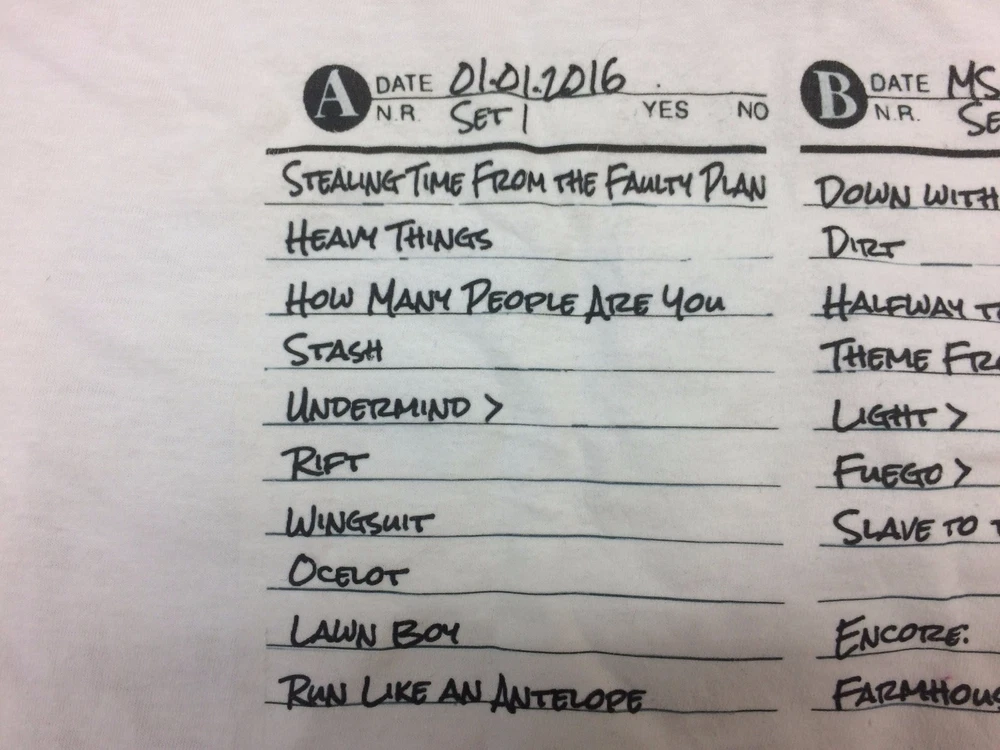 A DATE 01.01.2016
N.R. SET 1 YES NO
STEALING TIME FROM THE FAULTY PLAN
HEAVY THINGS
HOW MANY PEOPLE ARE YOU
STASH
UNDERMIND >
RIFT
WINGSUIT
OCELOT
LAWN BOY
RUN LIKE AN ANTELOPE
B DATE MS
N.R. SE
DOWN WITH
DIRT
HALFWAY T
THEME FR
LIGHT >
FUEGO >
SLAVE TO T
ENCORE:
FARMHOUS